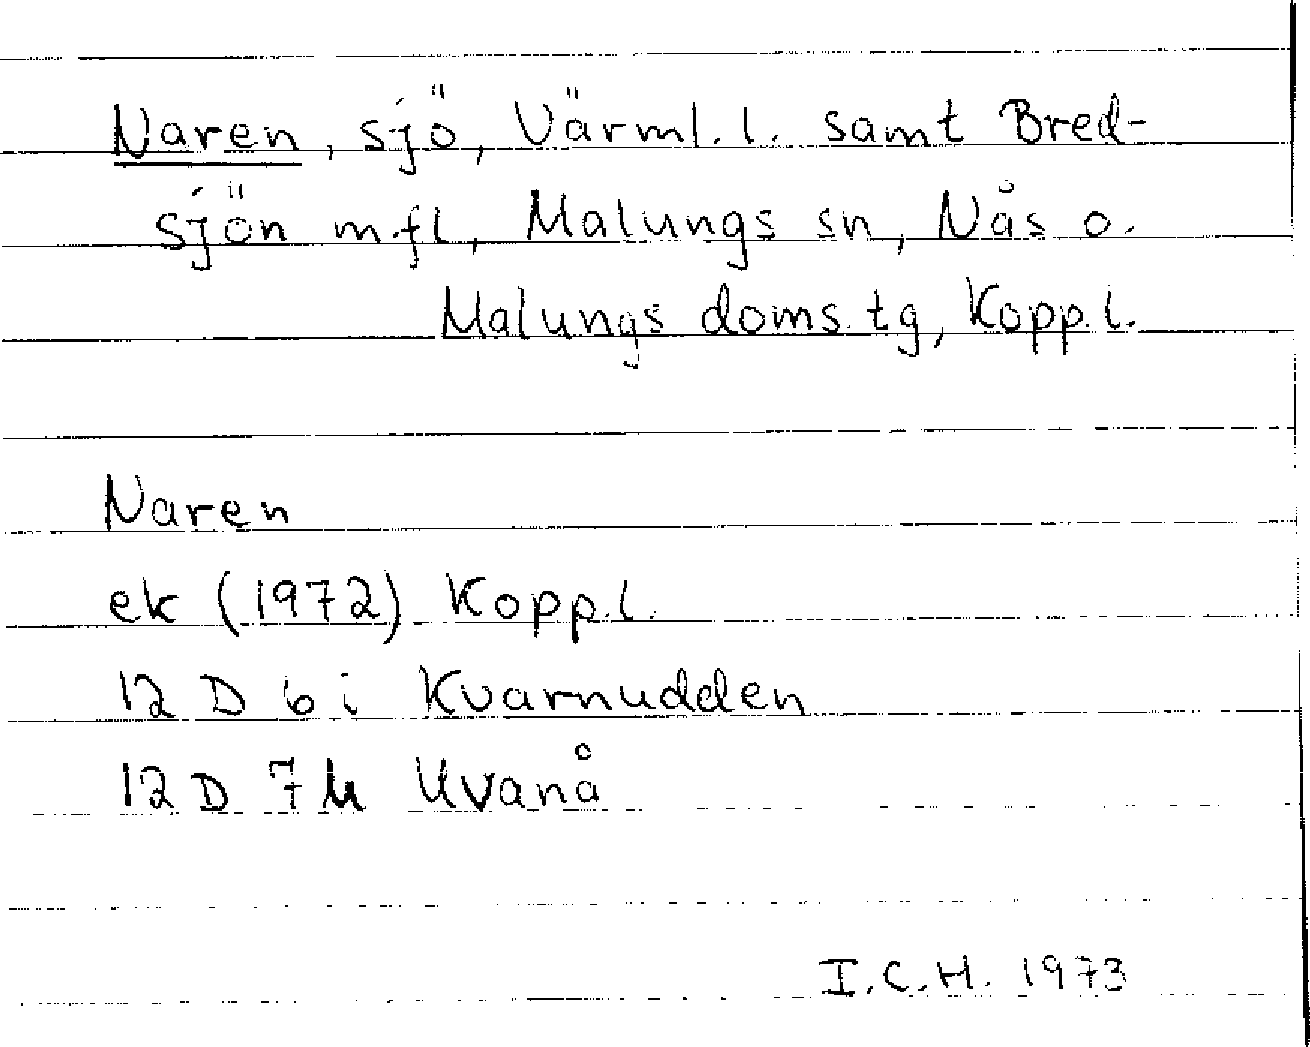 Naren, sjö, Värml. l. samt Bred-
sjön mfl, Malungs sn, Nås o.
Malungs doms.tg, Kopp.l.
Naren
ek (1972) Kopp.l.
12 D 6 i Kvarnudden
12 D 7 h Uvanå
I.C.H. 1973